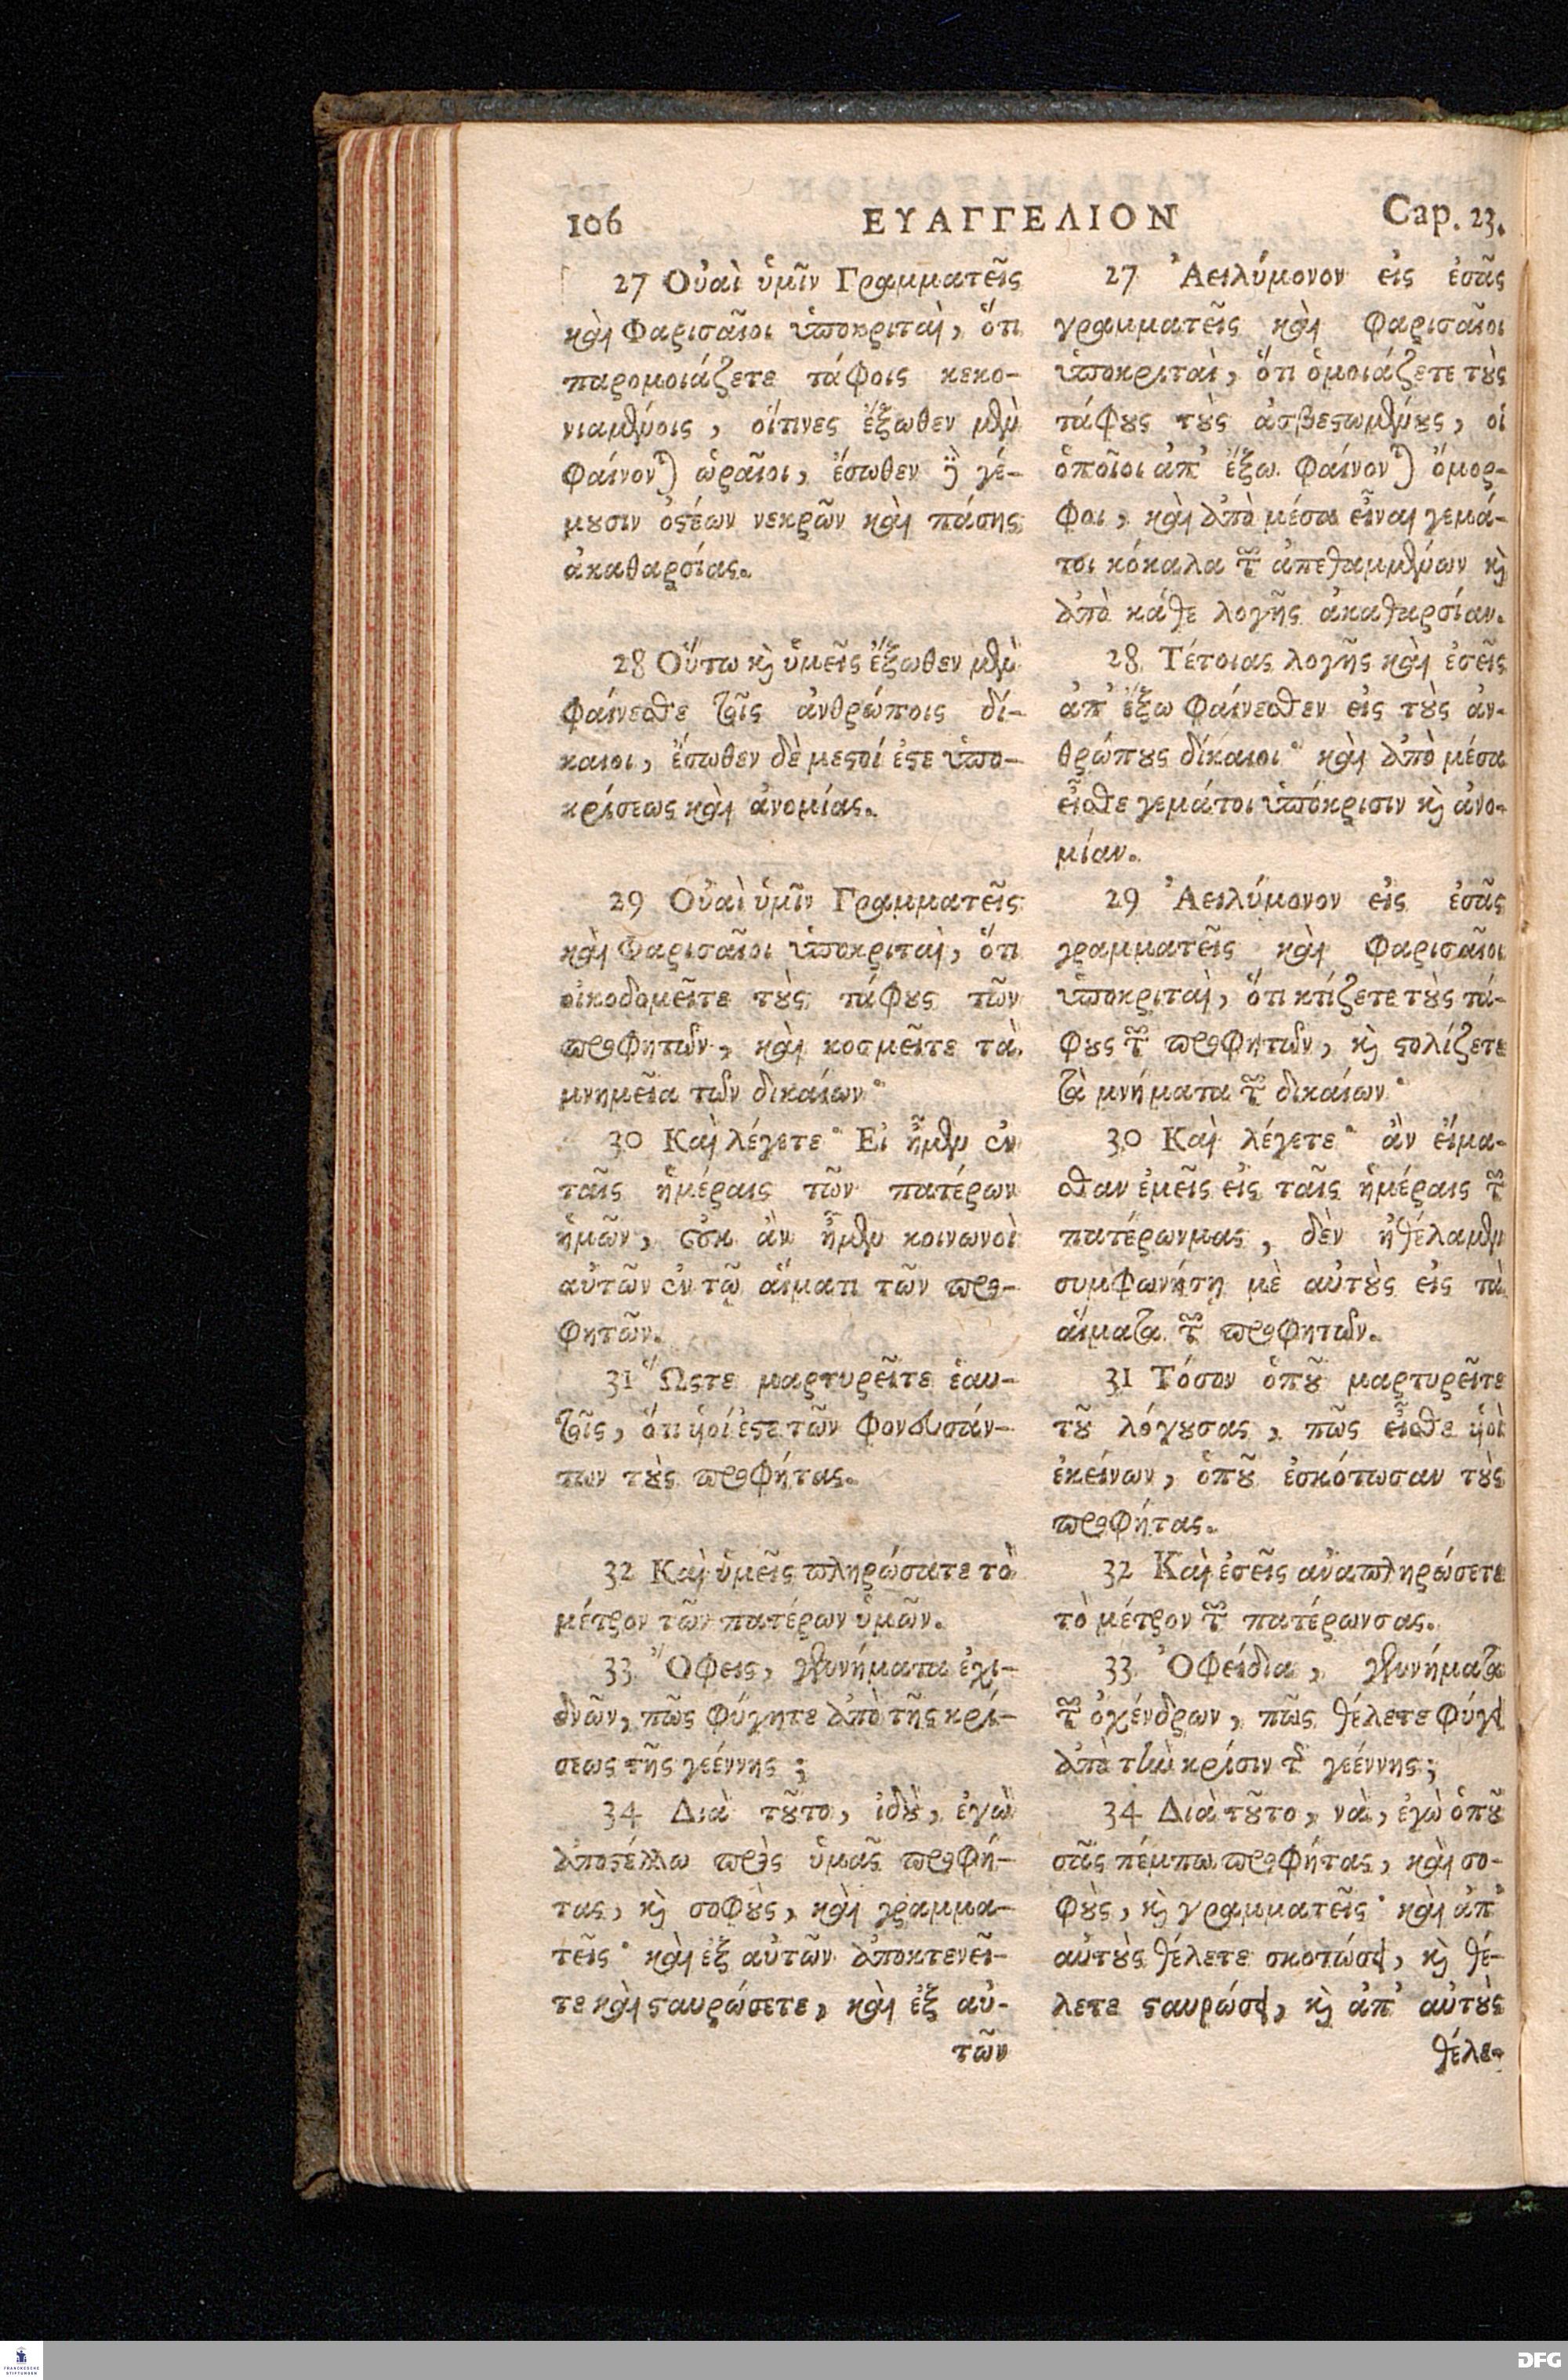 106 ΕΥΑΓΓΕΛΙΟΝ Cap. 23.
27 Οὐαὶ ὑμῖν Γραμματεῖς
καὶ Φαρισαῖοι ὑποκριταὶ, ὅτι
παρομοιάζετε τάφοις κεκο-
νιαμένοις, οἵτινες ἔξωθεν μὲν
φαίνονται ὡραῖοι, ἔσωθεν δὲ γέ-
μουσιν ὀστέων νεκρῶν καὶ πάσης
ἀκαθαρσίας.
28 Οὕτω καὶ ὑμεῖς ἔξωθεν μὲν
φαίνεσθε τοῖς ἀνθρώποις δί-
καιοι, ἔσωθεν δὲ μεστοί ἐστε ὑπο-
κρίσεως καὶ ἀνομίας.
29 Οὐαὶ ὑμῖν Γραμματεῖς
καὶ Φαρισαῖοι ὑποκριταὶ, ὅτι
οἰκοδομεῖτε τοὺς τάφους τῶν
προφητῶν, καὶ κοσμεῖτε τὰ
μνημεῖα τῶν δικαίων·
30 Καὶ λέγετε· Εἰ ἦμεν ἐν
ταῖς ἡμέραις τῶν πατέρων
ἡμῶν, οὐκ ἂν ἦμεν κοινωνοὶ
αὐτῶν ἐν τῷ αἵματι τῶν προ-
φητῶν.
31 Ὥστε μαρτυρεῖτε ἑαυ-
τοῖς, ὅτι υἱοί ἐστε τῶν φονευσάν-
των τοὺς προφήτας.
32 Καὶ ὑμεῖς πληρώσατε τὸ
μέτρον τῶν πατέρων ὑμῶν.
33 Ὄφεις, γεννήματα ἐχι-
δνῶν, πῶς φύγητε ἀπὸ τῆς κρί-
σεως τῆς γεέννης;
34 Διὰ τοῦτο, ἰδοὺ, ἐγὼ
ἀποστέλλω πρὸς ὑμᾶς προφή-
τας, καὶ σοφοὺς, καὶ γραμμα-
τεῖς· καὶ ἐξ αὐτῶν ἀποκτενεῖ-
τε καὶ σταυρώσετε, καὶ ἐξ αὐ-
τῶν
27 Ἀειλύμονον εἰς ἐσᾶς
γραμματεῖς καὶ Φαρισαῖοι
ὑποκριταὶ, ὅτι ὁμοιάζετε τοὺς
τάφους τοὺς ἀσβεστωμένους, οἱ
ὁποῖοι ἀπ' ἔξω φαίνονται ὄμορ-
φοι, καὶ ἀπὸ μέσα εἶναι γεμά-
τοι κόκαλα τῶν ἀπεθαμμένων καὶ
ἀπὸ κάθε λογῆς ἀκαθαρσίαν.
28 Τέτοιας λογῆς καὶ ἐσεῖς
ἀπ' ἔξω φαίνεσθεν εἰς τοὺς ἀν-
θρώπους δίκαιοι· καὶ ἀπὸ μέσα
εἶσθε γεμάτοι ὑπόκρισιν καὶ ἀνο-
μίαν.
29 Ἀειλύμονον εἰς ἐσᾶς
γραμματεῖς καὶ Φαρισαῖοι
ὑποκριταὶ, ὅτι κτίζετε τοὺς τά-
φους τῶν προφητῶν, καὶ στολίζετε
τὰ μνήματα τῶν δικαίων·
30 Καὶ λέγετε· ἂν εἴμα-
σθαν ἐμεῖς εἰς ταῖς ἡμέραις τῶν
πατέρωνμας, δὲν ἠθέλαμεν
συμφωνήσῃ μὲ αὐτοὺς εἰς τὰ
αἵματα τῶν προφητῶν.
31 Τόσον ὁποῦ μαρτυρεῖτε
τοῦ λόγουσας, πῶς εἶσθε υἱοὶ
ἐκείνων, ὁποῦ ἐσκότωσαν τοὺς
προφήτας.
32 Καὶ ἐσεῖς ἀναπληρώσετε
τὸ μέτρον τῶν πατέρωνσας.
33 Ὀφείδια, γεννήματα
τῶν ὀχένδρων, πῶς θέλετε φύγει
ἀπὸ τὴν κρίσιν τῆς γεέννης;
34 Διὰ τοῦτο, νὰ, ἐγὼ ὁποῦ
σᾶς πέμπω προφήτας, καὶ σο-
φοὺς, καὶ γραμματεῖς· καὶ ἀπ'
αὐτοὺς θέλετε σκοτώσει, καὶ θέ-
λετε σταυρώσει, καὶ ἀπ' αὐτοὺς
θέλε-
FRANCKESCHE
STIFTUNGEN
DFG